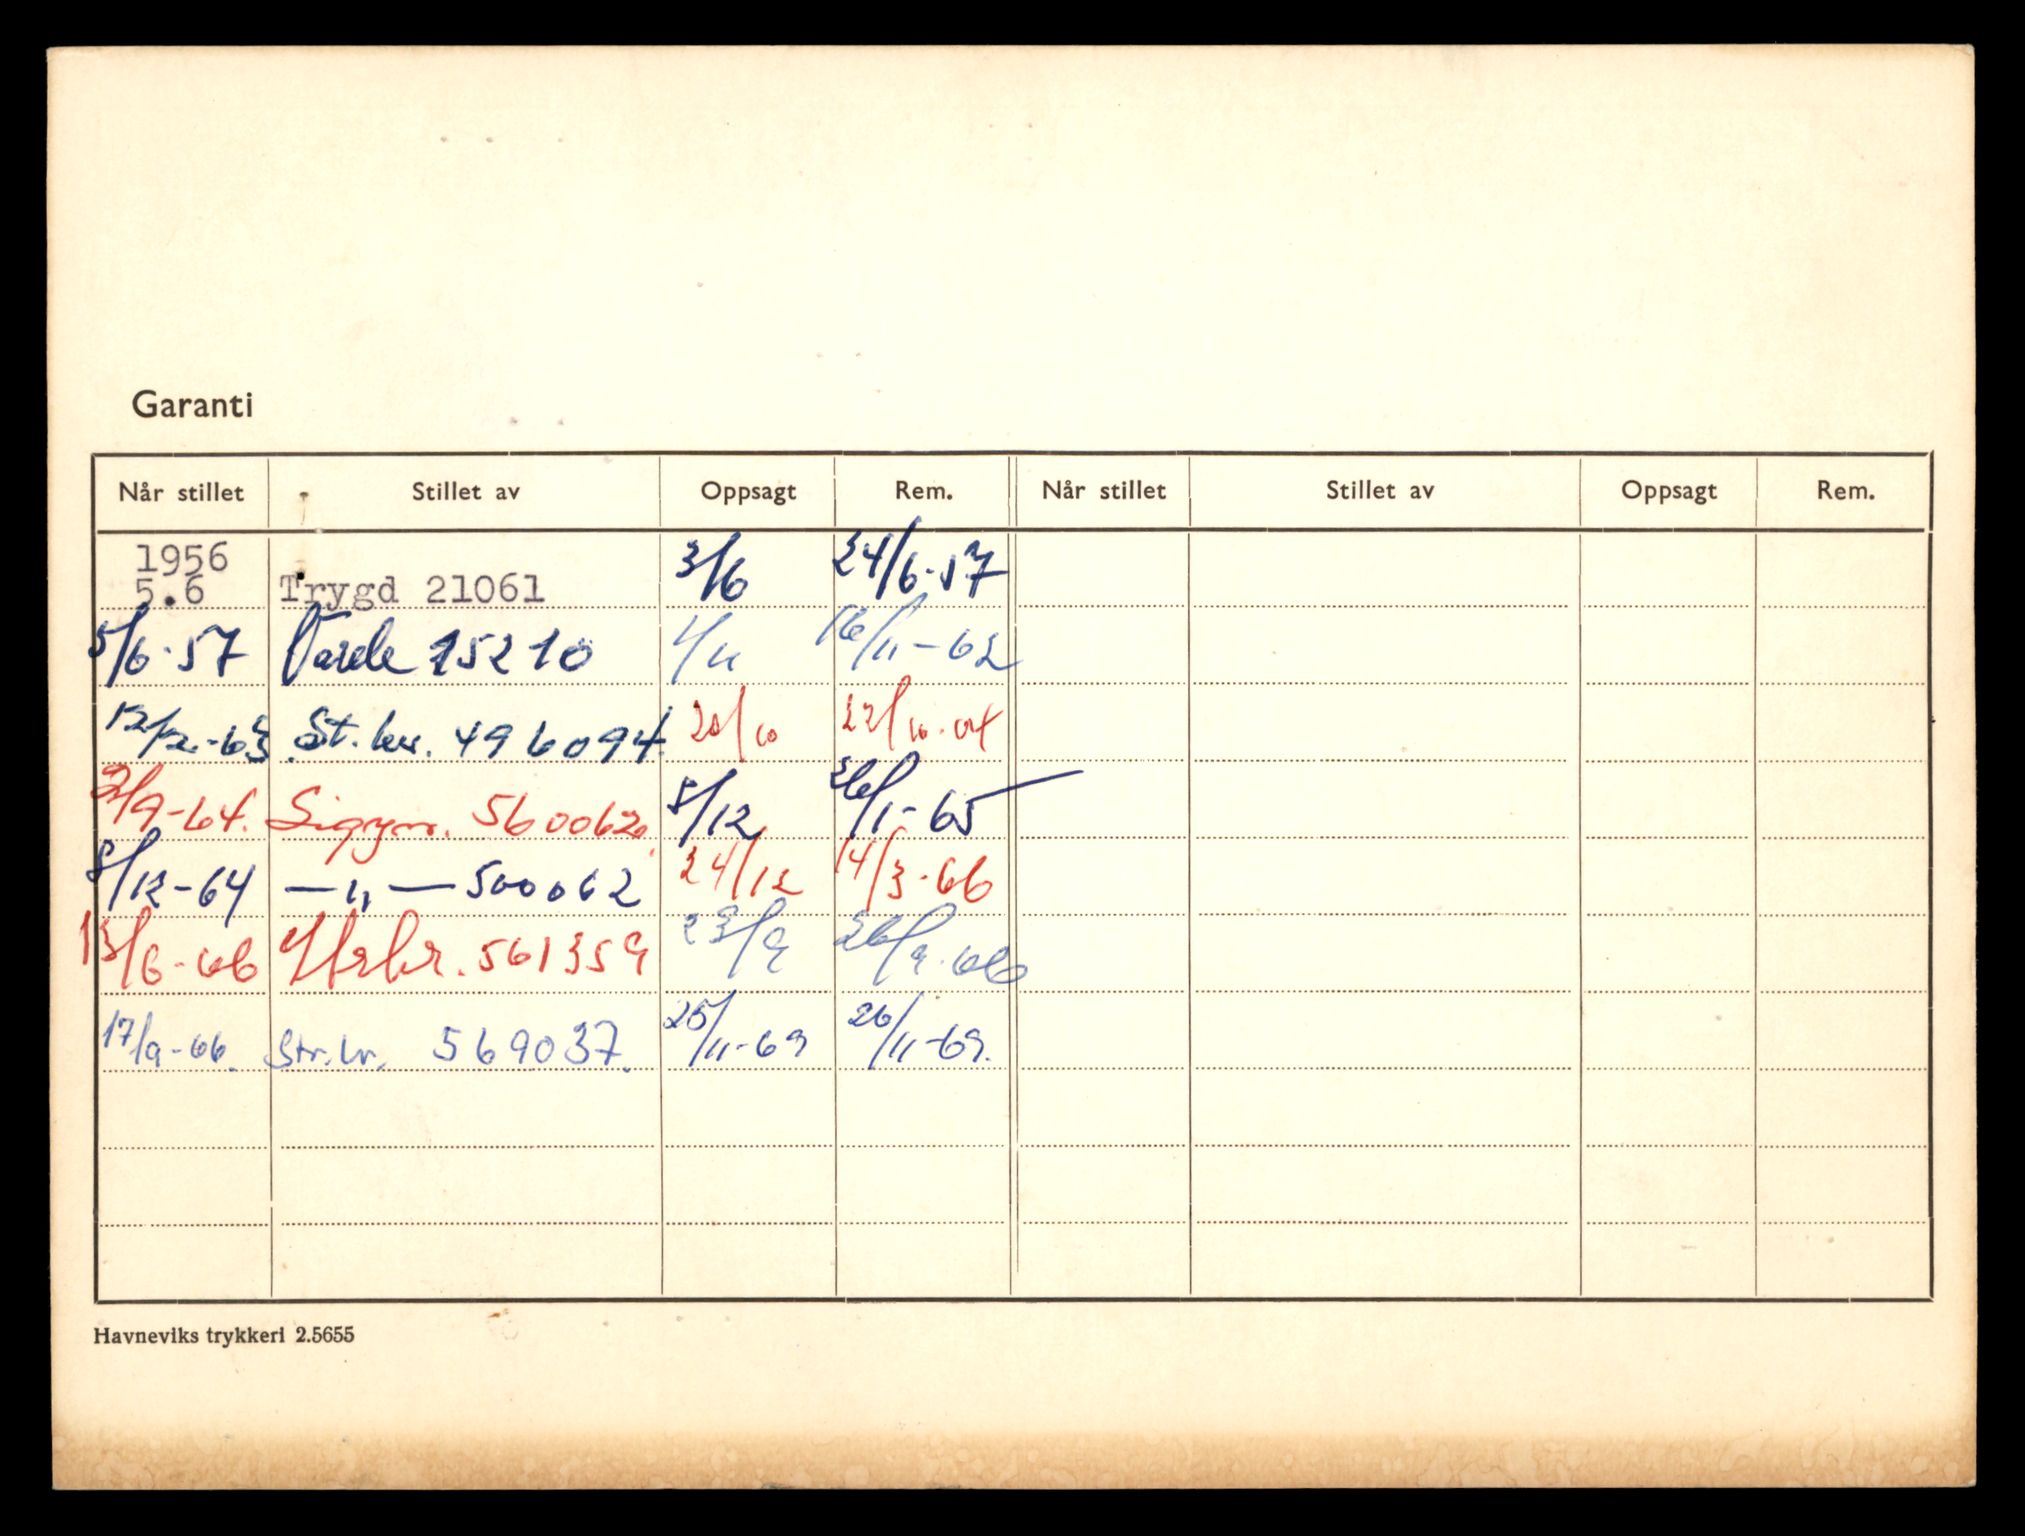 Garanti
Når stillet Stillet av Oppsagt Rem. Når stillet Stillet av Oppsagt Rem.
1956
5.6 Trygd 21061 3/6 24/6-57
5/6-57 Varde 15210 4/11 16/11-62
12/2-63 St.br. 496094. 20/10 22/10-64
2/9-64. Sigyn. 560062. 8/12 26/1-65
8/12-64 —„— 500062 24/12 14/3-66
13/6-66 561359 23/9 26/9-66
17/9-66. Str.br. 569037. 25/11-69 26/11-69.
Havneviks trykkeri 2.5655